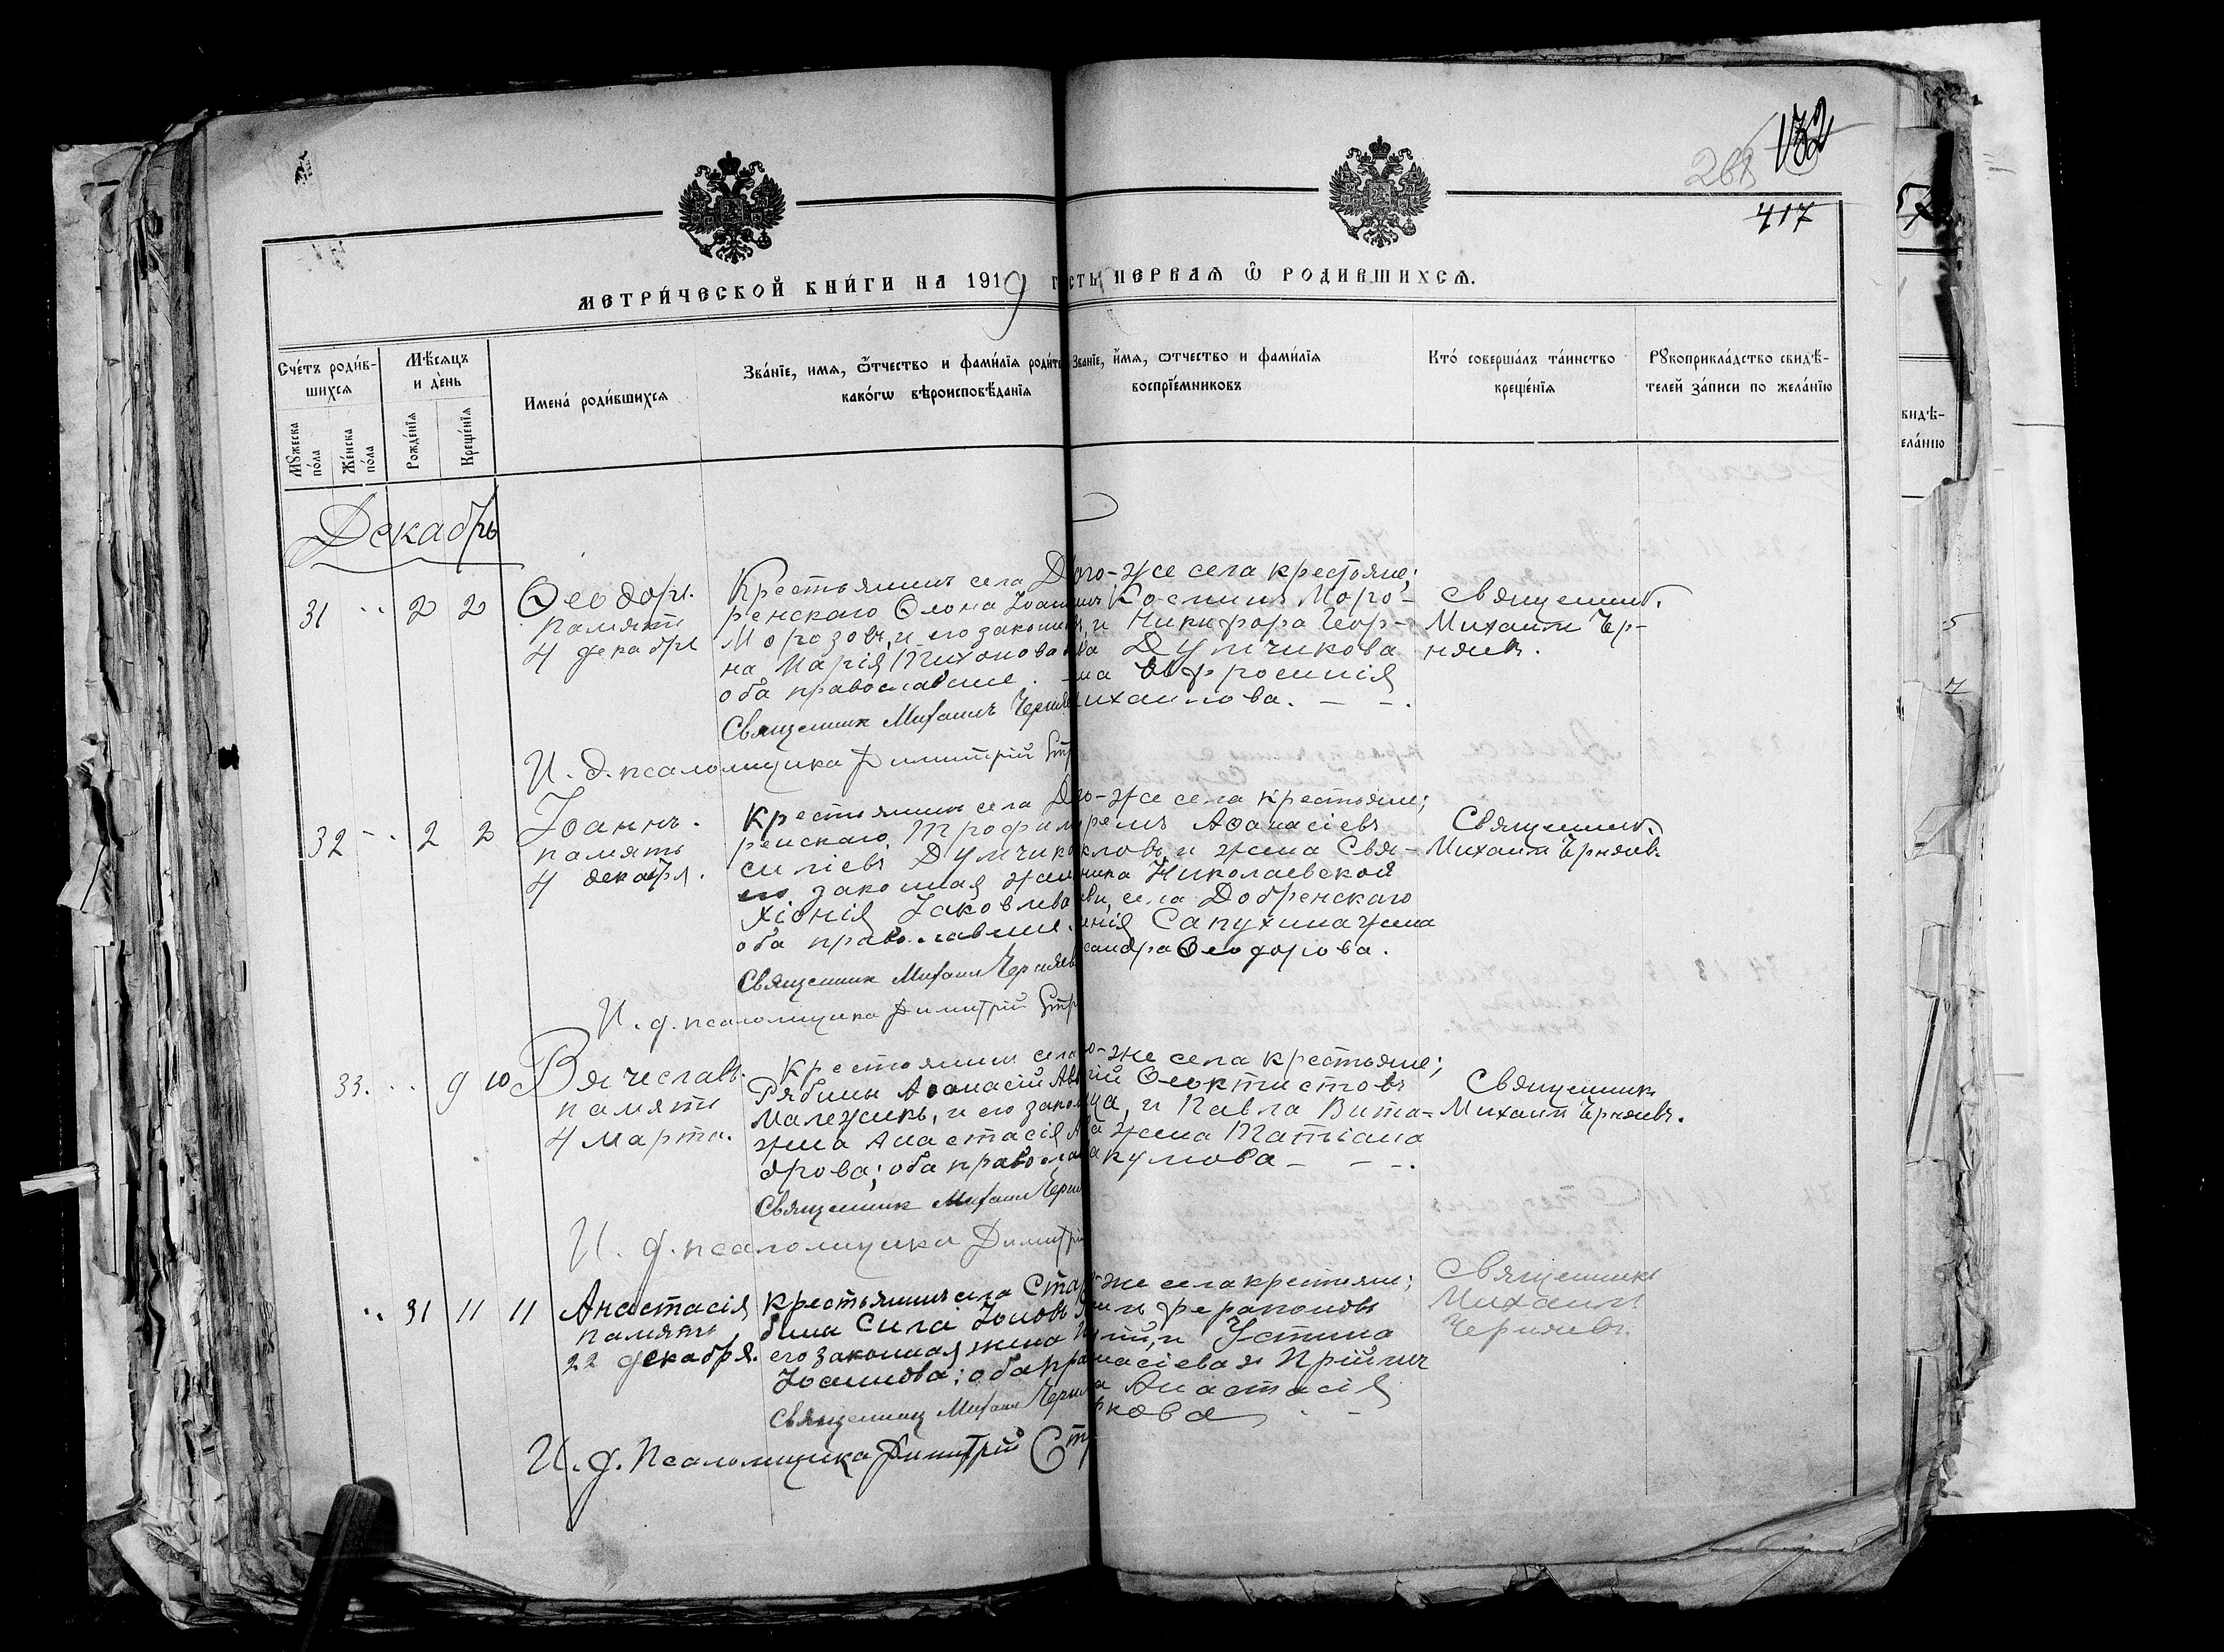 132
268
417
МЕТРИ́ЧЕСКОЙ КНИ́ГИ НА 1919 Г
СТЬ ПЕРВАѦ Ѿ РОДИВШИХСѦ.
Сче́тъ роди́в-
шихсѧ
Мꙋжеска
по́ла
Женска
по́ла
Мѣ́сѧцъ
и де́нь
Рожде́нїѧ
Креще́нїѧ
Имена́ роди́вшихсѧ
Зва́нїе, имѧ, ѻ҆́тчество и фами́лїѧ роди́те
како́гѡ вѣроисповѣ́данїѧ
Зва́нїе, и́мѧ, ѻтчество и фами́лїѧ
воспрїе́мниковъ
Кто́ соверша́лъ та́инство
креще́нїѧ
Рꙋкоприкла́дство свидѣ́-
телей за́писи по жела́нїю
видѣ́-
ела́нию
Декабрь
31 2 2
Ѳеодоръ.
память
4 декабря
Крестьянинъ села До
ренскаго Ѳеона Іоанн
Морозовъ, и его закон
на Марія Тихонова
оба православные.
Священник Михаилъ Черняев
И. д. псаломщика Димитрій Стр
ого-же села крестьяне;
Косьмин Моро-
и Никифора Геор-
ва Думчикова
на Евфросинія
ихаилова. — —.
Священник.
Михаилъ Чер-
няевъ.
32 2 2
Іоаннъ.
память
4 декабря.
Крестьянинъ села До
ренскаго, Трофим
силіевъ Думчико
его законная жен
Хіонія Іаковлева
оба православные.
Священник Михаил Черняев
И. д. псаломщика Димитрій Стр
го-же села крестьяне;
ремъ Аѳанасіевъ
кловъ, и жена Свя-
ника Николаевской
кви, села Добренскаго
енія Сапухина жена
сандра Ѳеодорова.
Священник.
Михаилъ Черняевъ.
33. 9 10
Вячеславъ.
память
4 марта.
Крестьянин села
Рябины Аѳанасій Ав
Малежикъ, и его закон
жена Анастасія А
дрова; оба правосла
Священник Михаил Черня
И. д. псаломщика Димитрі
о-же села крестьяне;
гій Ѳеоктистовъ
ца, и Павла Вита-
ва жена Татіана
акумова — — —.
Священникъ
Михаилъ Черняевъ.
31 11 11
Анастасія
память
22 декабря.
Крестьянинъ села Ста
бина Сила Іоновъ
его законная жена
Іоаннова; оба пра
Священник Михаил Черня
И. д. Псаломщика Димитрій Ст
же села крестьяне;
Ферапонов
и Устина
насіева
Анастасія
ркова
Священникъ
Михаилъ
Черняевъ.